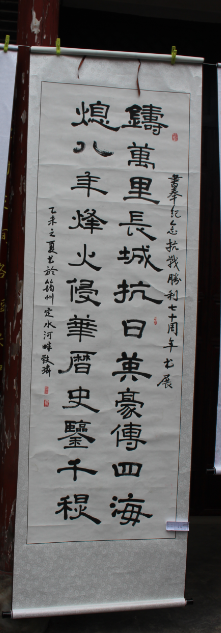 書奉纪念抗戰勝利七十周年书展
鑄萬里長城抗日英豪傳四海
熄八年烽火侵華歷史鑒千秋
乙未之夏书於筠州定水河畔